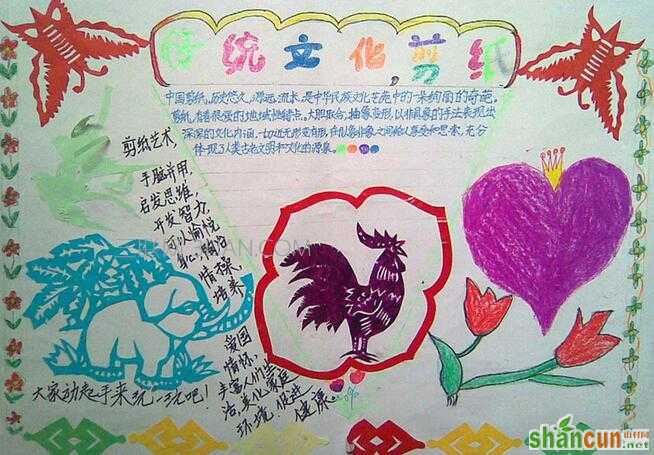 传统文化，剪纸
中国剪纸，历史悠久，源远流长，是中华民族文化艺苑中的一朵绚丽的奇葩。
剪纸有着很强的地域性特点。大胆取舍，抽象变形，以非具象的手法表现出
深深的文化内涵，一切近无形变有形，在似象非象之间给人享受和思索，充分
体现了人类古老文明和文化的源泉。
剪纸艺术
手脑并用，
启发思维，
开发智力，
可以愉悦
身心，陶冶
情操，
培养
爱国
情怀，
丰富人们生
活，美化家庭
环境，促进
健康。
大家动起手来玩一玩吧！
shancun
.net